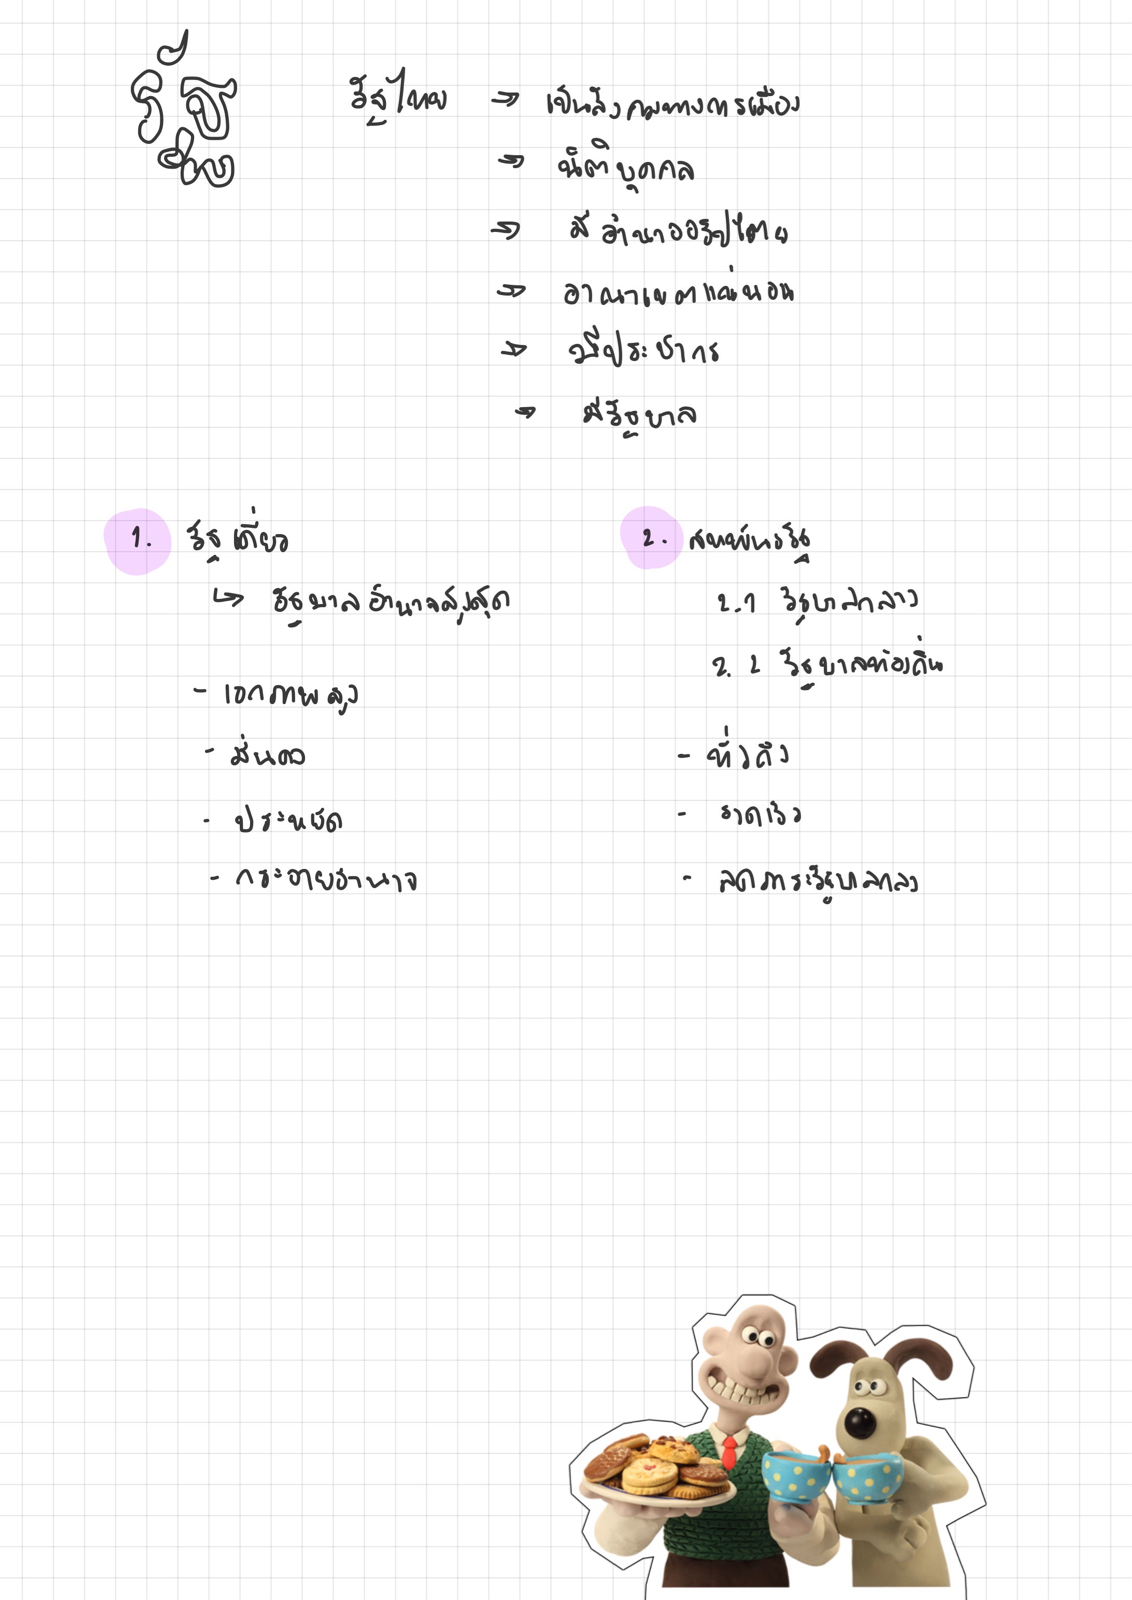 รัฐ
รัฐไทย → เป็นสังคมทางการเมือง
→ นิติบุคคล
→ มีอำนาจอธิปไตย
→ อาณาเขตแน่นอน
→ มีประชากร
→ มีรัฐบาล
1. รัฐเดี่ยว
↳ รัฐบาลอำนาจสูงสุด
- เอกภาพสูง
- มั่นคง
- ประหยัด
- กระจายอำนาจ
2. สหพันธรัฐ
2.1 รัฐบาลกลาง
2.2 รัฐบาลท้องถิ่น
- ทั่วถึง
- รวดเร็ว
- ลดภาระรัฐบาลกลาง